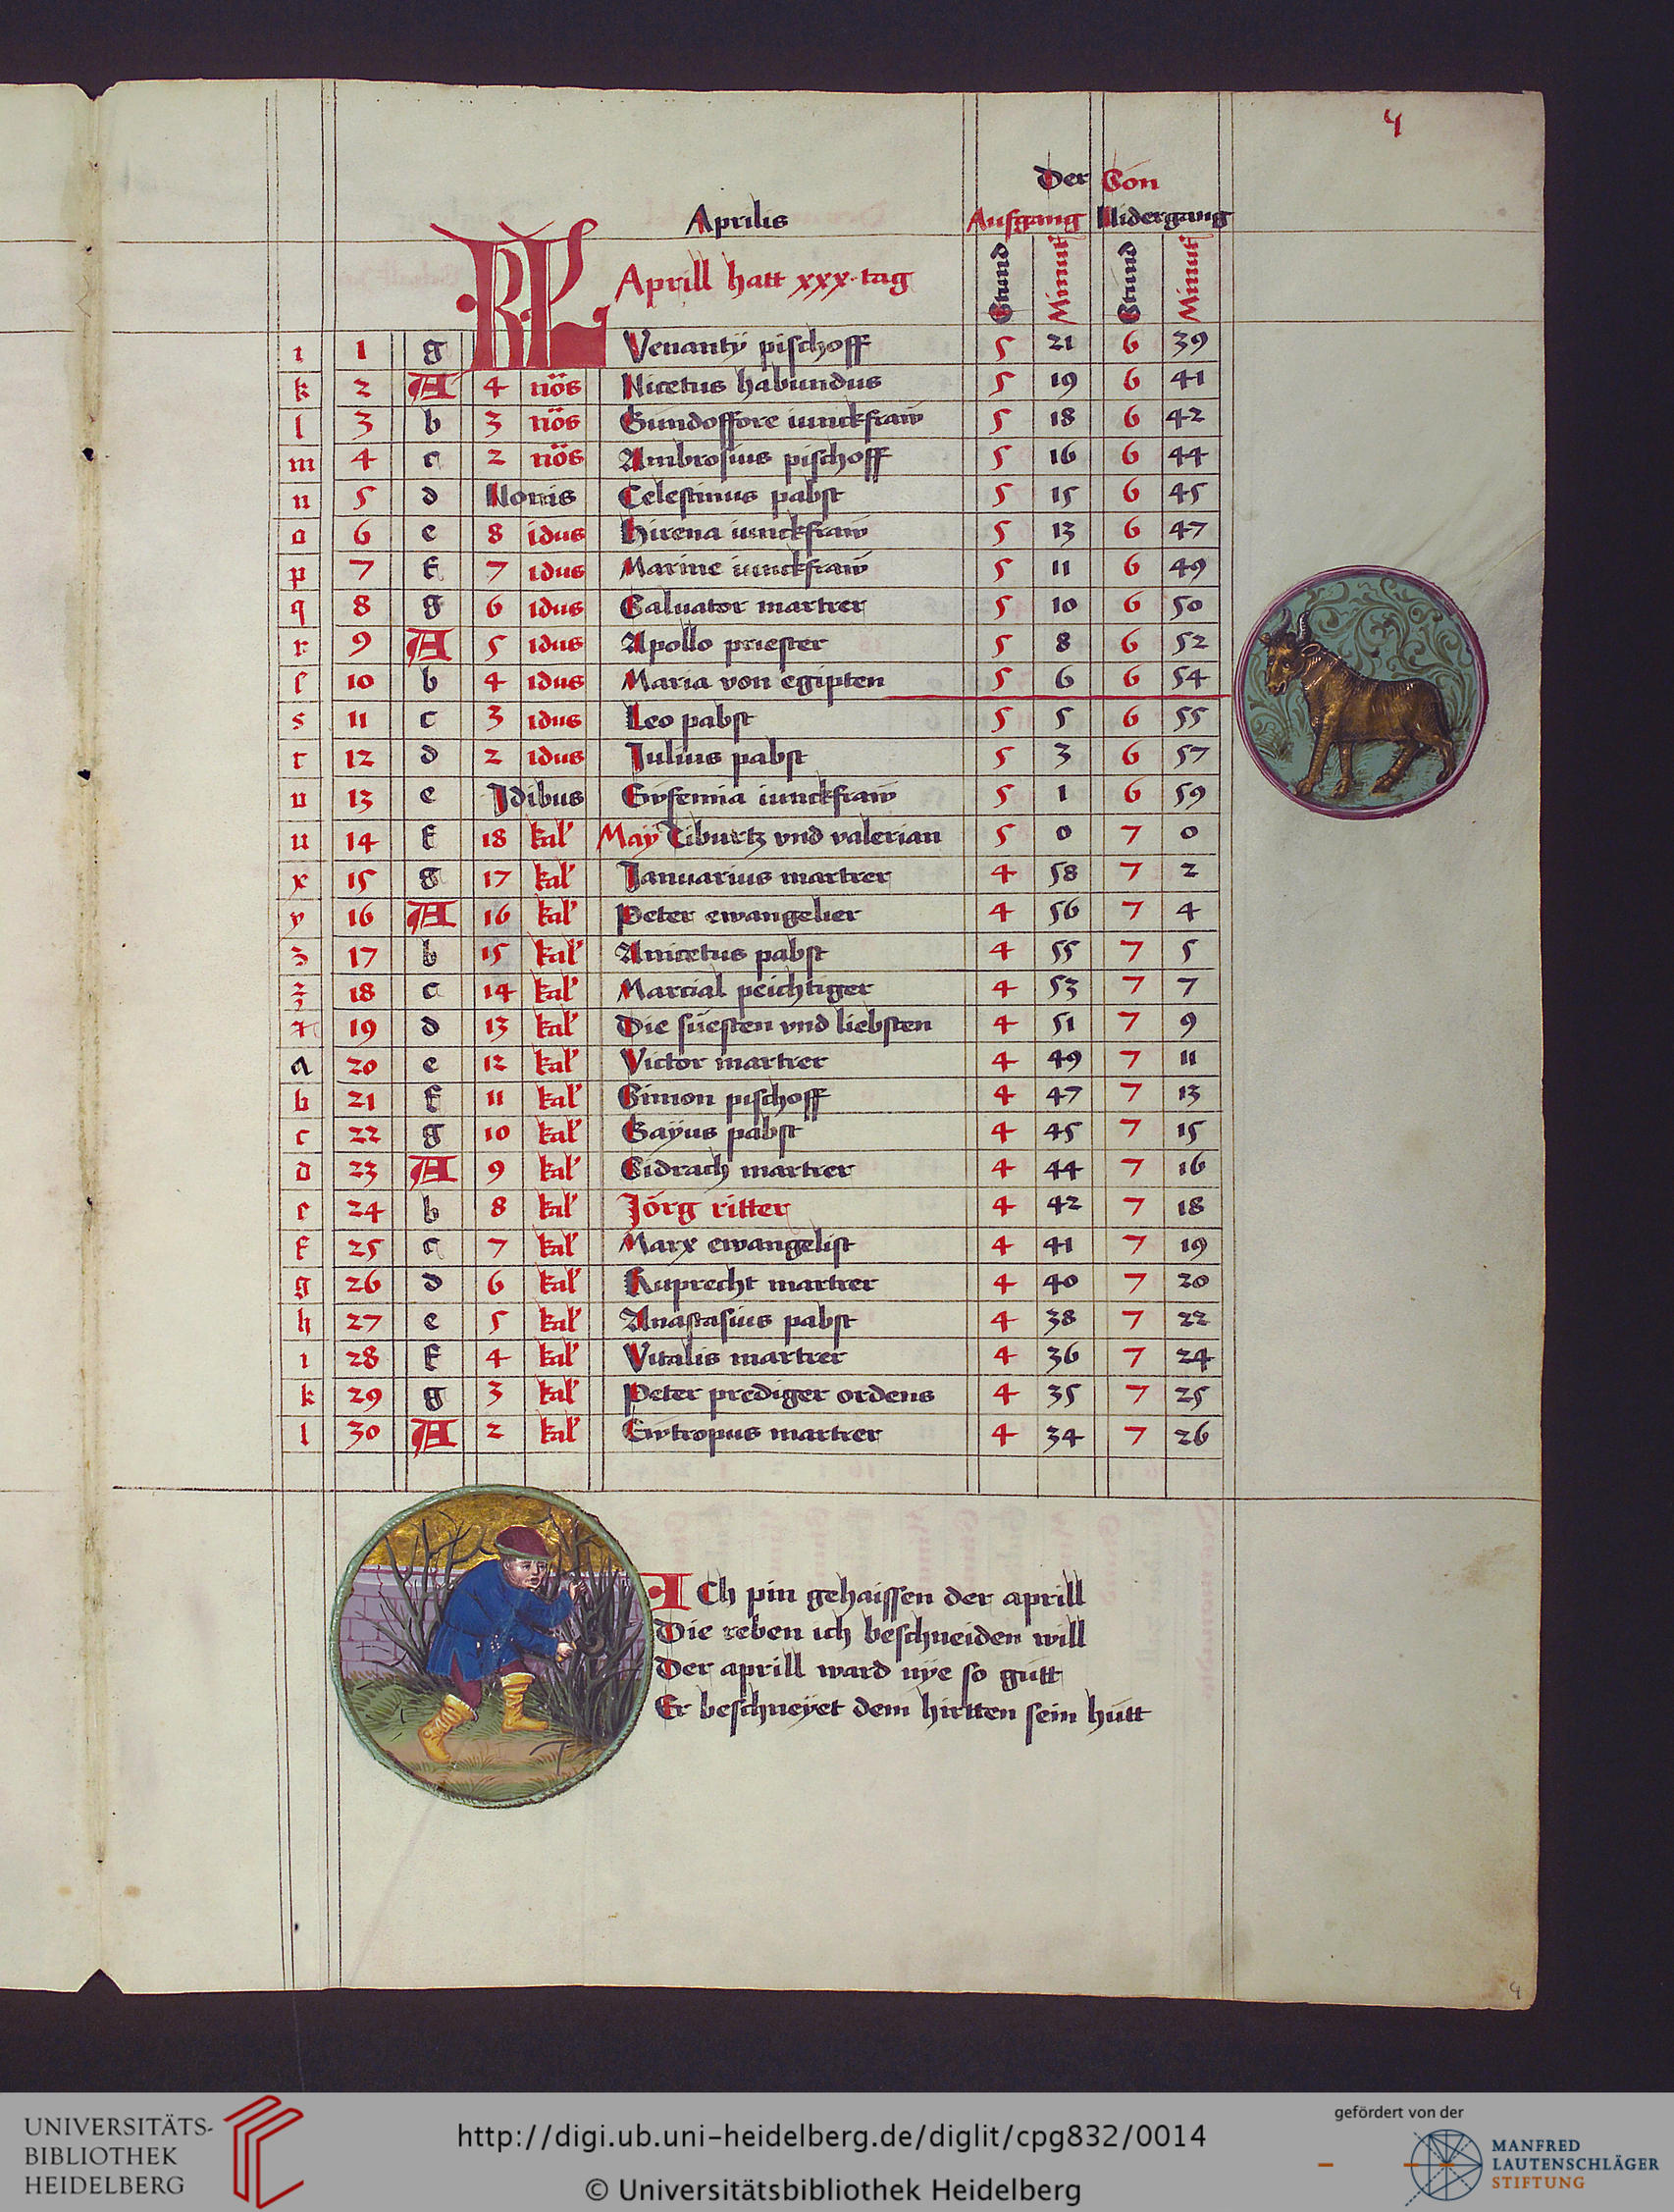 4
Der Son
Aprilis Aufgang Nidergang
KL Aprill hatt xxx tag Stund Minut Stund Minut
i 1 g Venanty pischoff 5 21 6 39
k 2 A 4 nōs Nicetus habundus 5 19 6 41
l 3 b 3 nōs Gundoffore iunckfraw 5 18 6 42
m 4 c 2 nōs Ambrosius pischoff 5 16 6 44
n 5 d Nonis Celestinus pabst 5 15 6 45
o 6 e 8 idus Hirena iunckfraw 5 13 6 47
p 7 f 7 idus Marine iunckfraw 5 11 6 49
q 8 g 6 idus Saluator martrer 5 10 6 50
r 9 A 5 idus Apollo priester 5 8 6 52
ſ 10 b 4 idus Maria von egipten 5 6 6 54
s 11 c 3 idus Leo pabst 5 5 6 55
t 12 d 2 idus Julius pabst 5 3 6 57
u 13 e Idibus Eufemia iunckfraw 5 1 6 59
u 14 f 18 kal' May Tiburtz vnd valerian 5 0 7 0
x 15 g 17 kal' Januarius martrer 4 58 7 2
y 16 A 16 kal' Peter ewangelier 4 56 7 4
z 17 b 15 kal' Anicetus pabst 4 55 7 5
18 c 14 kal' Marcial peichtiger 4 53 7 7
19 d 13 kal' Die süesten vnd liebsten 4 51 7 9
a 20 e 12 kal' Victor martrer 4 49 7 11
b 21 f 11 kal' Simon pischoff 4 47 7 13
c 22 g 10 kal' Gayus pabst 4 45 7 15
d 23 A 9 kal' Sidrach martrer 4 44 7 16
e 24 b 8 kal' Jörg ritter 4 42 7 18
f 25 c 7 kal' Marx ewangelist 4 41 7 19
g 26 d 6 kal' Ruprecht martrer 4 40 7 20
h 27 e 5 kal' Anastasius pabst 4 38 7 22
i 28 f 4 kal' Vitalis martrer 4 36 7 24
k 29 g 3 kal' Peter prediger ordens 4 35 7 25
l 30 A 2 kal' Ewtropus martrer 4 34 7 26
ICh pin gehaissen der aprill
Die reben ich beschneiden will
Der aprill ward nye so gutt
Er beschneyet dem hirtten sein hutt
4
UNIVERSITÄTS-
BIBLIOTHEK
HEIDELBERG
http://digi.ub.uni-heidelberg.de/diglit/cpg832/0014
© Universitätsbibliothek Heidelberg
gefördert von der
MANFRED
LAUTENSCHLÄGER
STIFTUNG